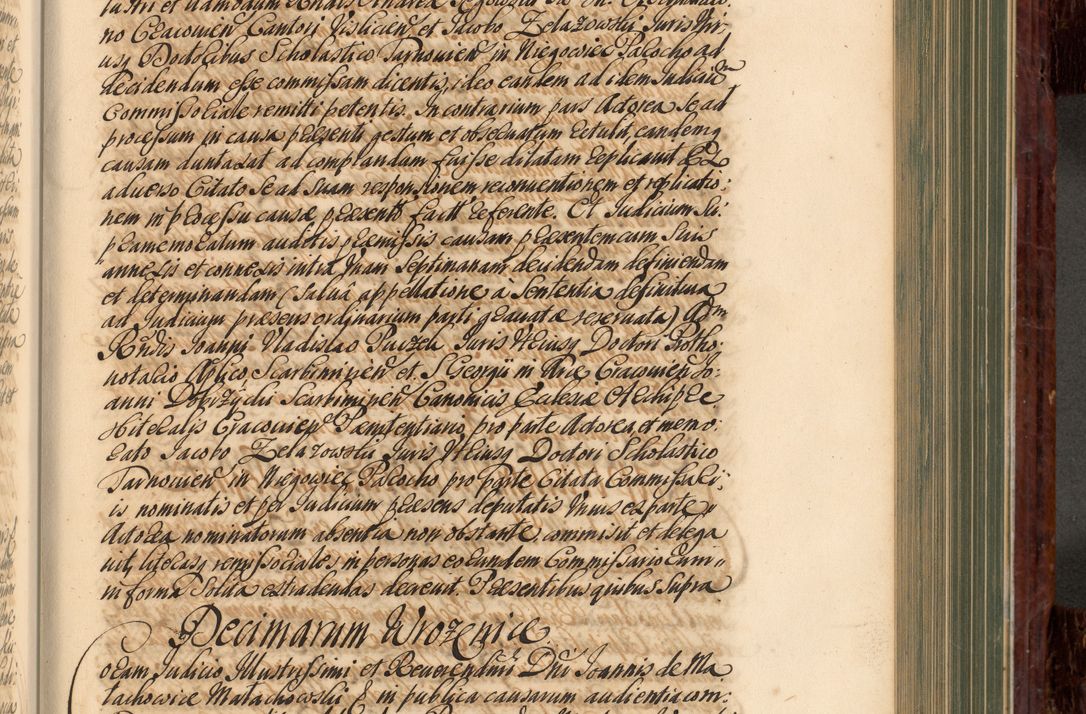 no Cracovien̄ Cantori Vislicien̄ et Jacobo Zelazowski Juris Utr:
usq̨ Doctoribus Scholastico Tarnovien̄ in Niegowiec Parocho ad
decidendum esse commissam dicentis, ideo eandem ad idem Judiciū
Commissoriale remitti petentis. In contrarium pars Adorea se ad
processum in causa præsenti gestum et observatum retulit, eandemq̨
causam duntaxat ad complanandum fuisse dilatam replicavit Ex
adverso Citato se ad suam responsionem reconventionem et replicatio:
nem in processu causæ præsentis fact. referente. Et Judicium Su:
prememoratum auditis præmissis causam præsentem cum suis
annexis et connexis intra Unam Septimanam decidendam definiendam
et determinandam (salvâ appellatione à Sententia definitiva
ad Judicium præsens ordinarium parti gravatæ reservata) Adm
Rndis Joanni Vladislao Paczek Juris Utriusq̨ Doctori Protho:
notario Aplico Scarbimirien̄ et S. Georgii in Arce Cracovien̄ Jo:
anni Dobrzycki Scarbimirien̄ Canonicis Ecclesiæ Archipre
sbiteralis Cracovien̄ Pænitentiario, pro parte Adorea, et memo:
rato Jacobo Zelazowski Juris Utriusq̨ Doctori Scholastico
Tarnovien̄ in Niegowiec Parocho pro parte Citata Commissari:
is nominatis et per Judicium præsens deputatis Unius ex parte
Adorea nominatorum absentia non obstante, commisit et delega
vit, literasq̨ remissoriales, in personas eorundem Commissariorum
in forma solita extradendas decrevit. Præsentibus quibus supra
Decimarum Wrozenice
oram Judicio Illustrissimi et Reverendissi Dni Joannis de Ma
łachowice Małachowski & in publica causarum audientia com: